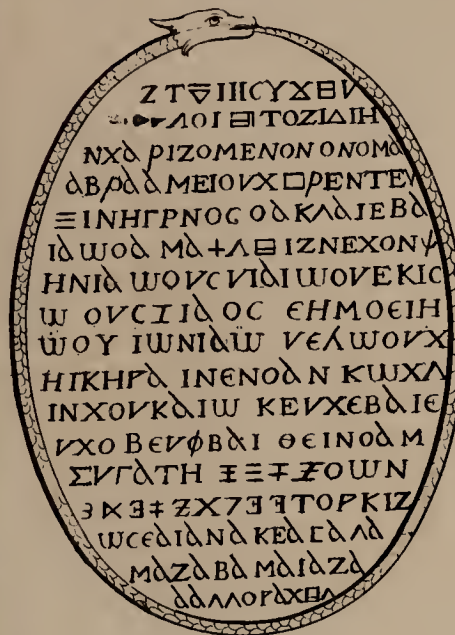 Ζ Τ ΙΙΙϹΥΧ日V
ΛΟΙ日ΤΟΖΙΔΙΗ
ΝΧαΡΙΖΟΜΕΝΟΝΟΝΟΜα
αΒΡααΜΕΙΟVΧ□ΡΕΝΤΕV
ΞΙΝΗΓΡΝΟϹΟαΚΛαΙΕΒα
ΙαωΟαΜα+Λ日ΙΖΝΕΧΟΝψ
ΗΝΙαωΟVϹVΙαΙωΟVΕΚΙϹ
ω ΟVϹΙΙαΟϹ ΕΗΜΟΕΙΗ
ωΟΥ ΙωΝΙαω VΕΛωΟVΧ
ΗΙΚΗΡα ΙΝΕΝΟαΝ ΚωΧΛ
ΙΝΧΟVΚαΙω ΚΕVΧΕΒαΙΕ
VΧΟΒΕVΦΒαΙ ΘΕΙΝΟαΜ
ΣVΓαΤΗ ΟωΝ
ΖΧ7ΤΟΡΚΙΖ
ωϹΕαΙαΝαΚΕαΓαΛα
ΜαΖαΒαΜαΙαΖα
ααΛΛΟΡαΧ日Λ